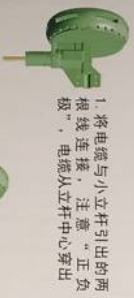 1. 将电缆与小立杆引出的两
根线连接，注意“正负
极”，电缆从立杆中心穿出